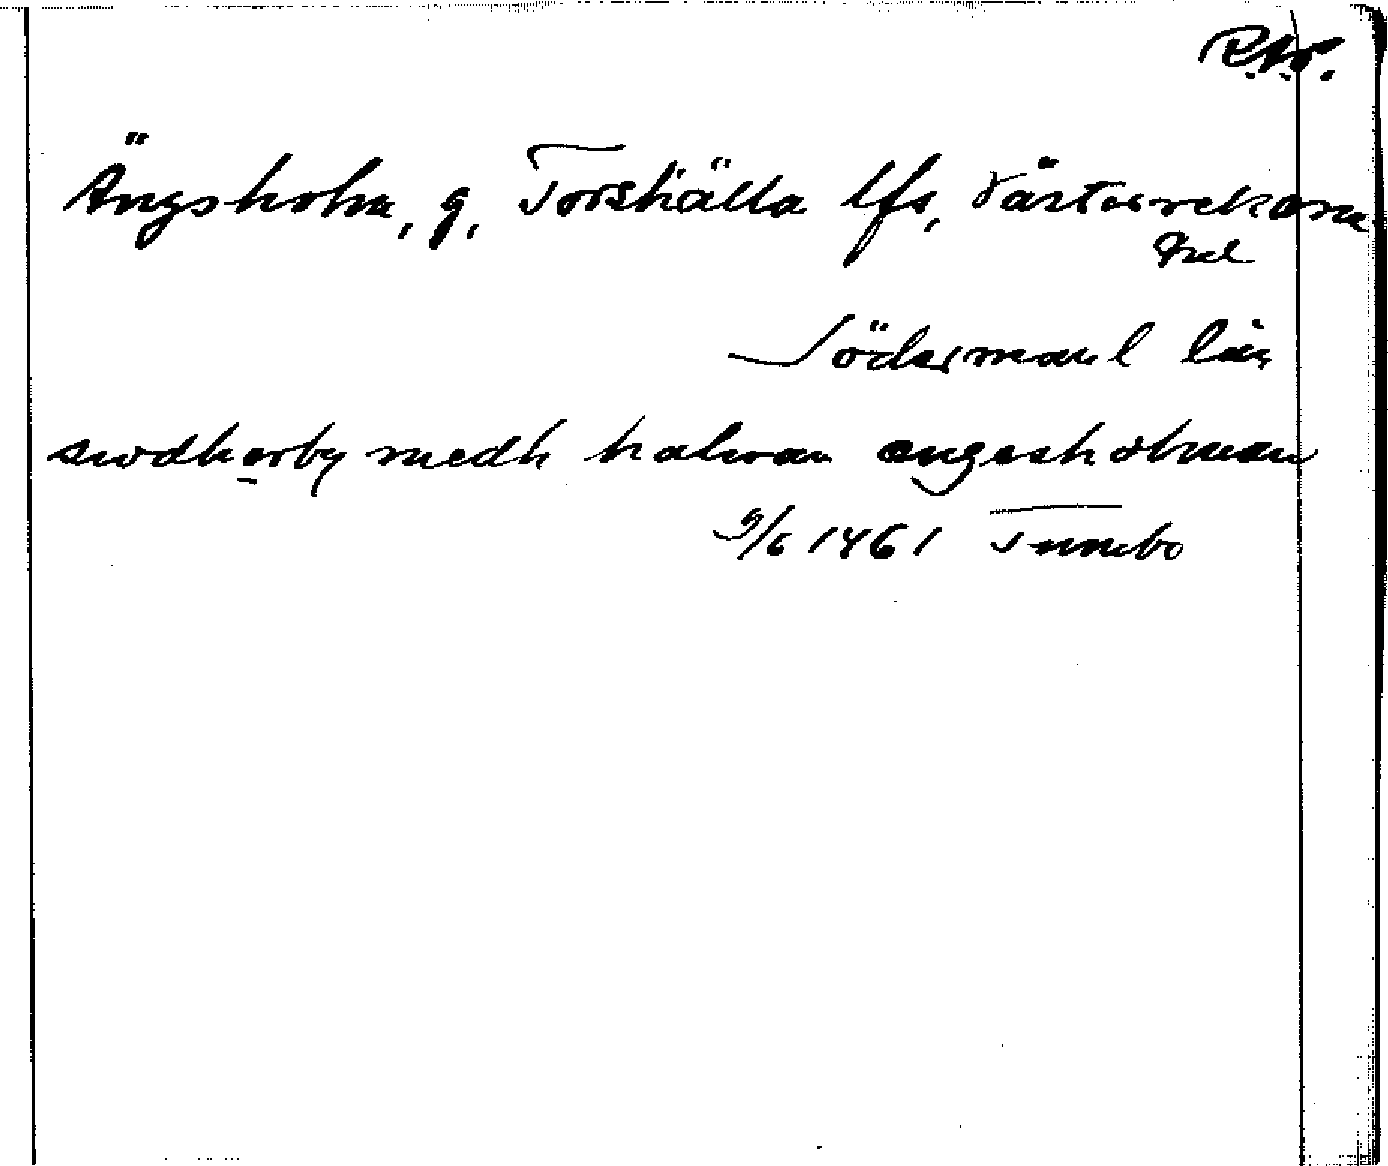 Ängsholm, g, Torshälla lfs, Västerrekarne
hd
Södermanl län
medh halwan angesholmen
9/6 1461 Tumbo